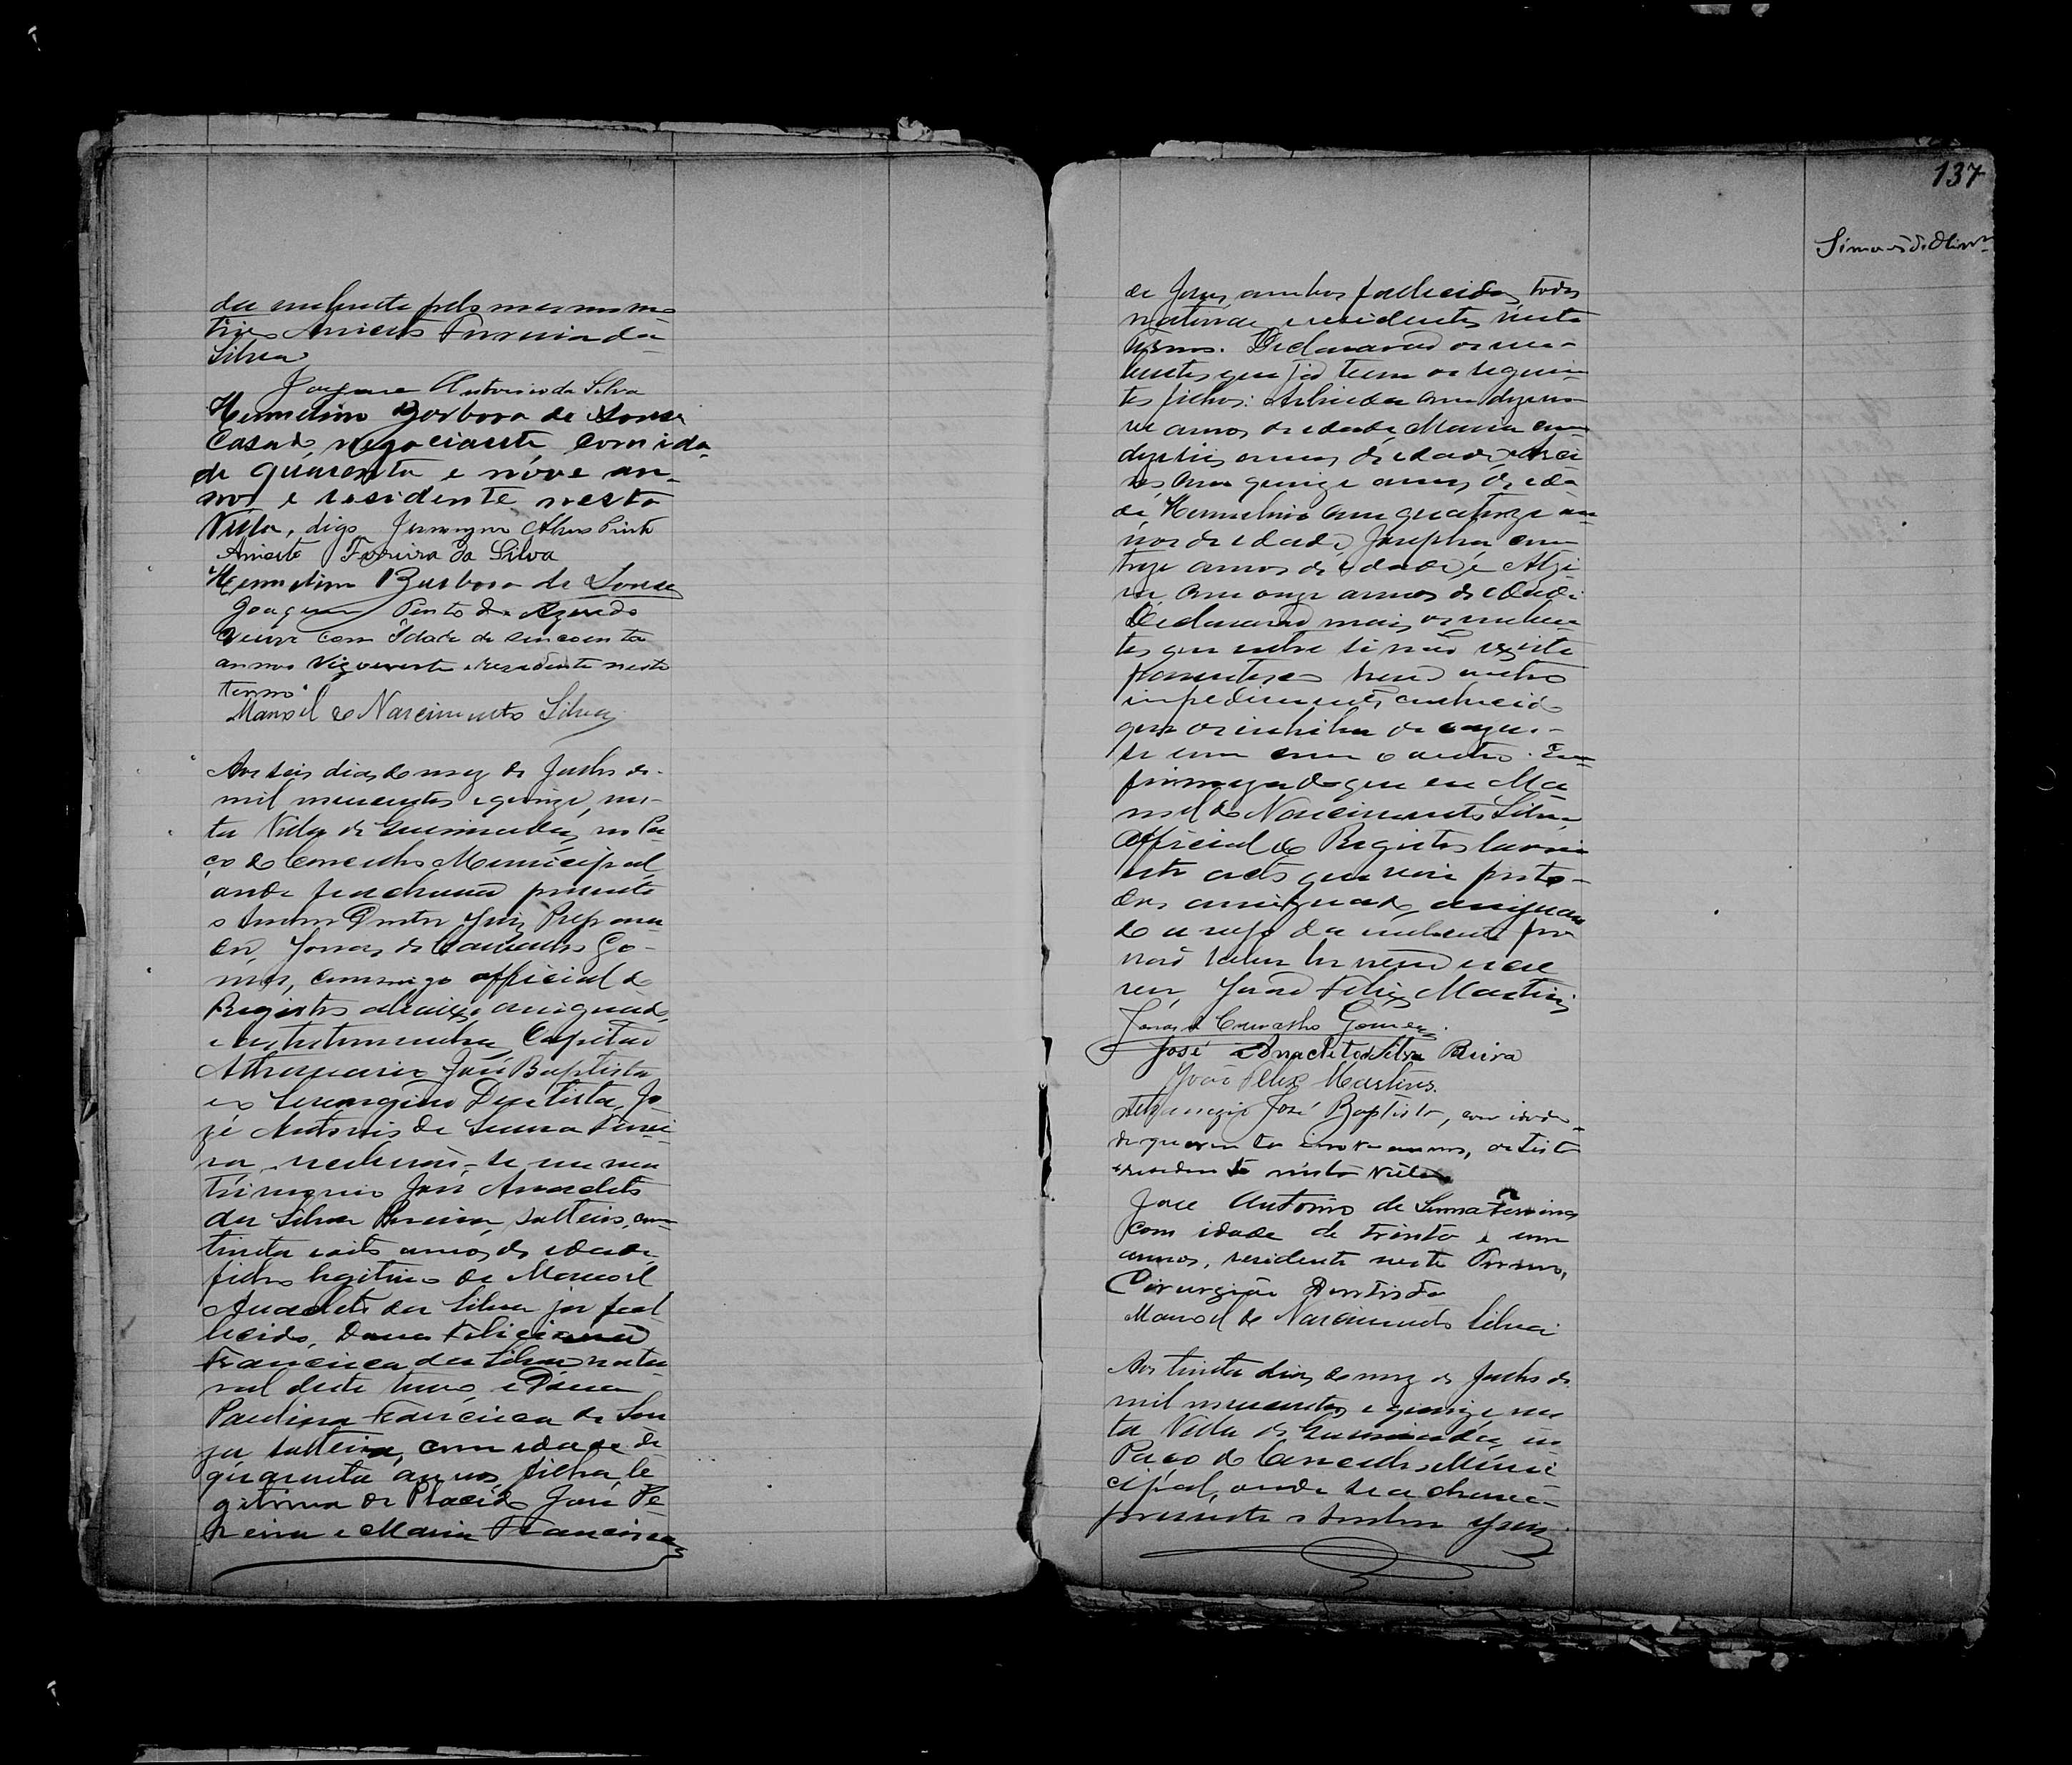 da nubente pelo mesmo mo
tivo Aniceto Ferreira da
Silva
Joaquim Antonio da Silva
Hermelino Barbosa de Sousa
Casado, negociante, com ida-
de quarenta e nove an-
nos e residente nesta
Villa, digo, Alves Pinto
Aniceto Ferreira da Silva
Hermelino Barbosa de Sousa
Joaquim Pinto de Azevedo
com Idade de cincoenta
annos e residente neste
termo
Manoel do Nascimento Silva
Aos seis dias do mez de Julho de
mil novecentos e quinze, nes-
ta Villa de Queimadas, no Pa-
ço do Conselho Municipal,
onde se achava presente
o Senhor Doutor Juiz Prepara
dor, Jonas de Carvalho Go-
mes, commigo official do
Registro abaixo assignado,
e as testemunhas, Capitão
José Baptista
e o Cirurgião Dentista, Jo-
sé Antonio de Senna Ferrei
ra, receberão-se em ma
trimonio José Anacleto
da Silva Pereira, solteiro, com
trinta e oito annos de idade
filho legitimo de Manoel
Anacleto da Silva já fal
lecido, Dona Feliciana
Francisca da Silva natu
ral deste termo e Dona
Paulina Francisca de Sou
za solteira, com idade de
quarenta annos, filha le
gitima de Placido José Pe
reira e Maria Francisca
137
Simão de Oliveira
de Jesus, ambos fallecidos, todos
naturaes e residentes neste
termo. Declararão os nu-
bentes que já teem os seguin-
tes filhos: com dezeno
ve annos de idade, Maria com
dezeseis annos de idade,
com quinze annos de ida
de Hermelino com quatorze an
nos de idade, Josepha com
treze annos de idade, e Alzi
ra com onze annos de idade
Declararão mais os nuben
tes que entre si não existe
parentesco nem outro
impedimento conhecido
que os inhiba de cazar-
se um com o outro. Em
firmeza do que eu Ma
noel do Nascimento Silva
Official do Registro lavrei
este acto que vai por to-
dos assignado, assignan
do a rogo da nubente por
não saber ler nem escre
ver, João Felix Martins
Jonas de Carvalho Gomes.
José Anacleto da Silva Pereira
João Felix Martins.
José Baptista, com idade
de quarenta e nove annos, artista
e residente nesta Villa
José Antonio de Senna Ferreira
com idade de trinta e um
annos, residente neste Termo,
Cirurgião Dentista
Manoel do Nascimento Silva
Aos trinta dias do mez de Julho de
mil novecentos e quinze nes
ta Villa de Queimadas, no
Paço do Conselho Muni
cipal, onde se achava
presente o Senhor Juiz